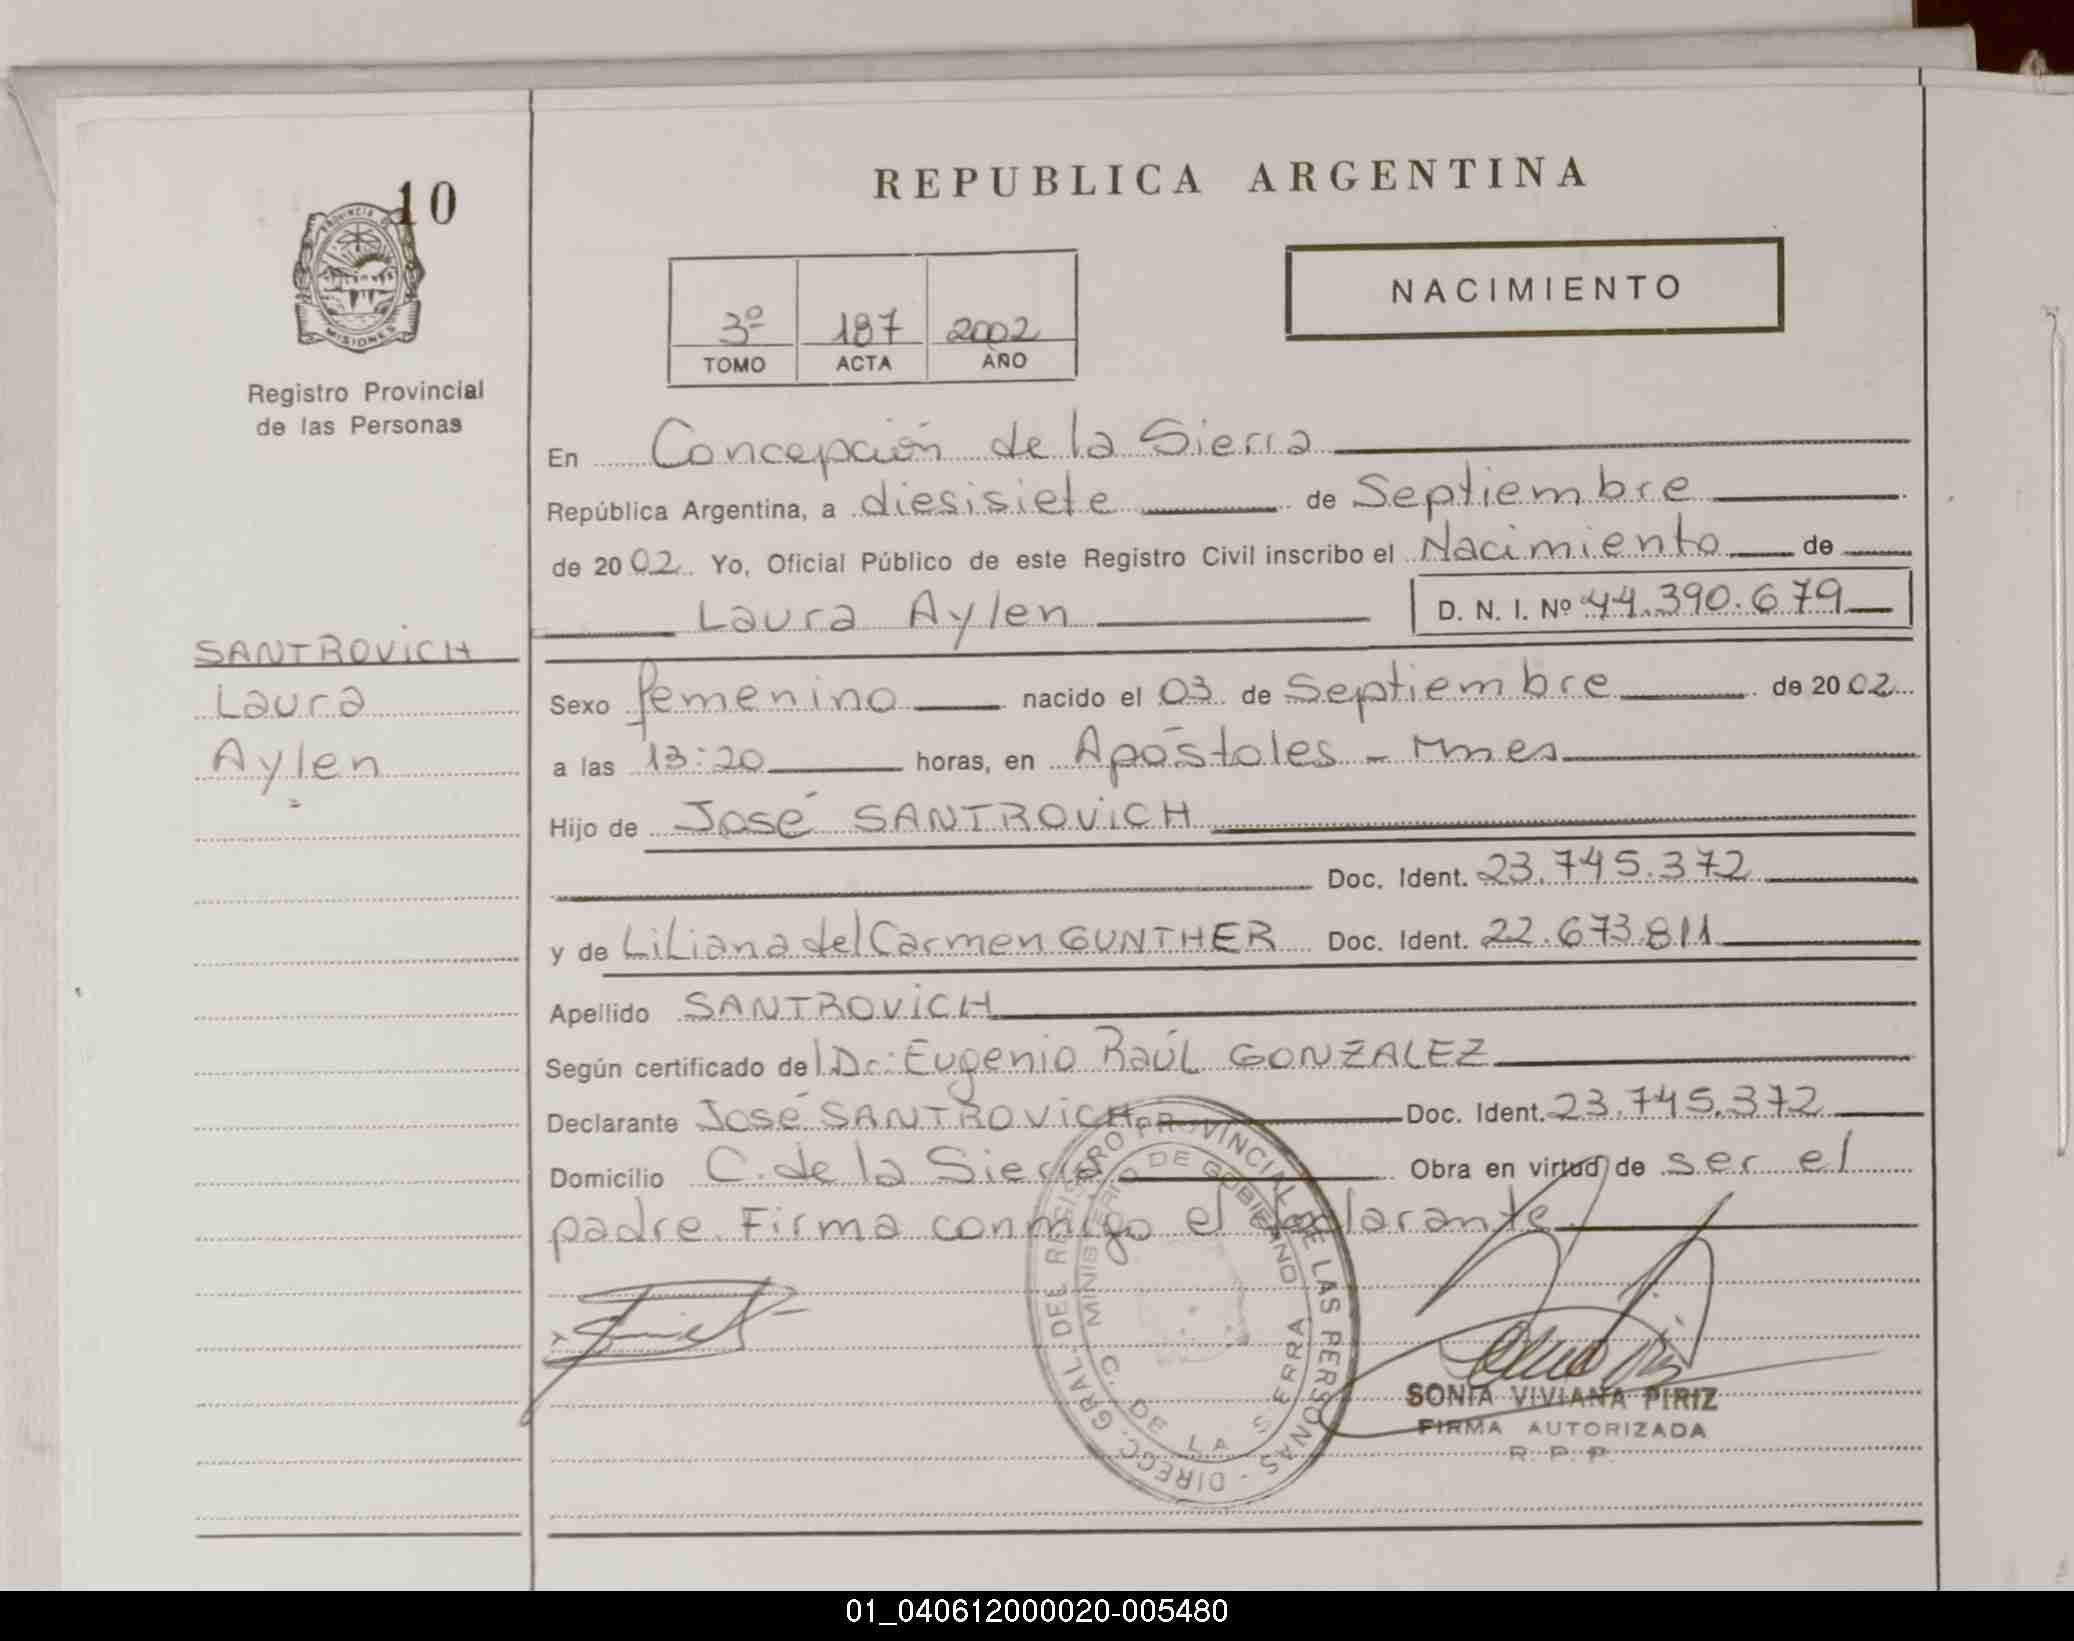 10
PROVINCIA DE
MISIONES
Registro Provincial
de las Personas
REPUBLICA ARGENTINA
3º 187 2002
TOMO ACTA AÑO
NACIMIENTO
En Concepción de la Sierra
República Argentina, a diesisiete de Septiembre
de 2002 Yo, Oficial Público de este Registro Civil inscribo el Nacimiento de
Laura Aylen D. N. I. Nº 44.390.679
SANTROVICH
Laura
Aylen
Sexo femenino nacido el 03 de Septiembre de 2002
a las 13:20 horas, en Apóstoles - Mnes
Hijo de José SANTROVICH
Doc. Ident. 23.745.372
y de Liliana del Carmen GUNTHER Doc. Ident. 22.673.811
Apellido SANTROVICH
Según certificado del Dr: Eugenio Raúl GONZALEZ
Declarante José SANTROVICH Doc. Ident. 23.745.372
Domicilio C. de la Sierra Obra en virtud de ser el
padre. Firma conmigo el declarante.
DIRECC. GRAL. DEL REGISTRO PROVINCIAL DE LAS PERSONAS -
MINISTERIO DE GOBIERNO
C. DE LA SIERRA
SONIA VIVIANA PIRIZ
FIRMA AUTORIZADA
R. P. P.
01_040612000020-005480